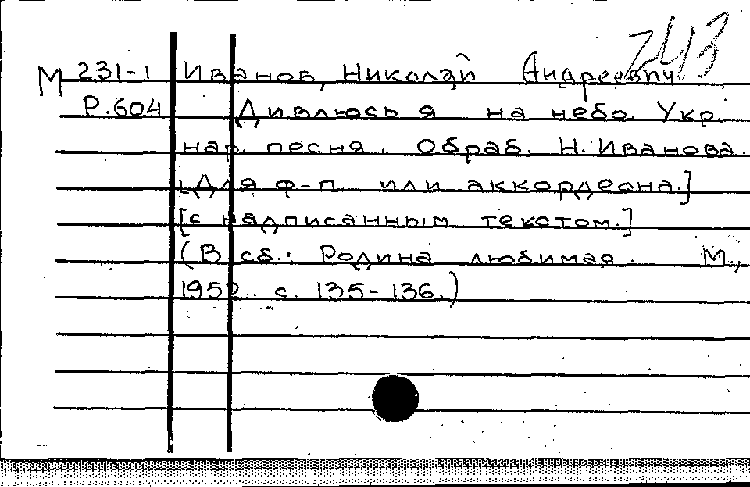 243
М 231-1 Иванов, Николай Андреевич
Р.604 Дивлюсь я на небо. Укр.
нар. песня. Обраб. Н. Иванова.
[Для ф-п. или аккордеона.]
[с надписанным текстом.]
(В сб.: Родина любимая. М.,
1952 с. 135-136.)